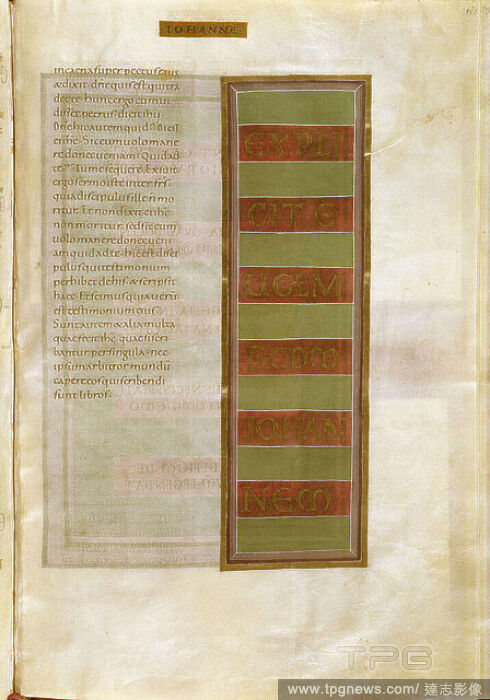 IOHANNE
incaena super pectus eius
& dixit dne quis est qui tra
det te hunc ergo cum ui
disset petrus dicit ihu
Dne hic autem quid Dicit
ei ihs Sic eum uolo mane
re donec ueniam Quid ad
te Tu me sequere Exiuit
ergo sermo iste inter frs
quia discipulus ille non mo
ritur Et non dixit ei ihs
non moritur sed sic eum
uolo manere donec ueni
am quid ad te hic est disci
pulus qui testimonium
perhibet de his & scripsit
haec Et scimus quia uerū
est testimonium eius
Sunt autem & alia multa
quae fecit ihs quae si scri
bantur per singula nec
ipsum arbitror mundū
capere eos qui scribendi
sunt libros
EXPLI
CIT E
UGELM
SECUN
IOHAN
NEM
TPG
www.tpgnews.com/達志影像